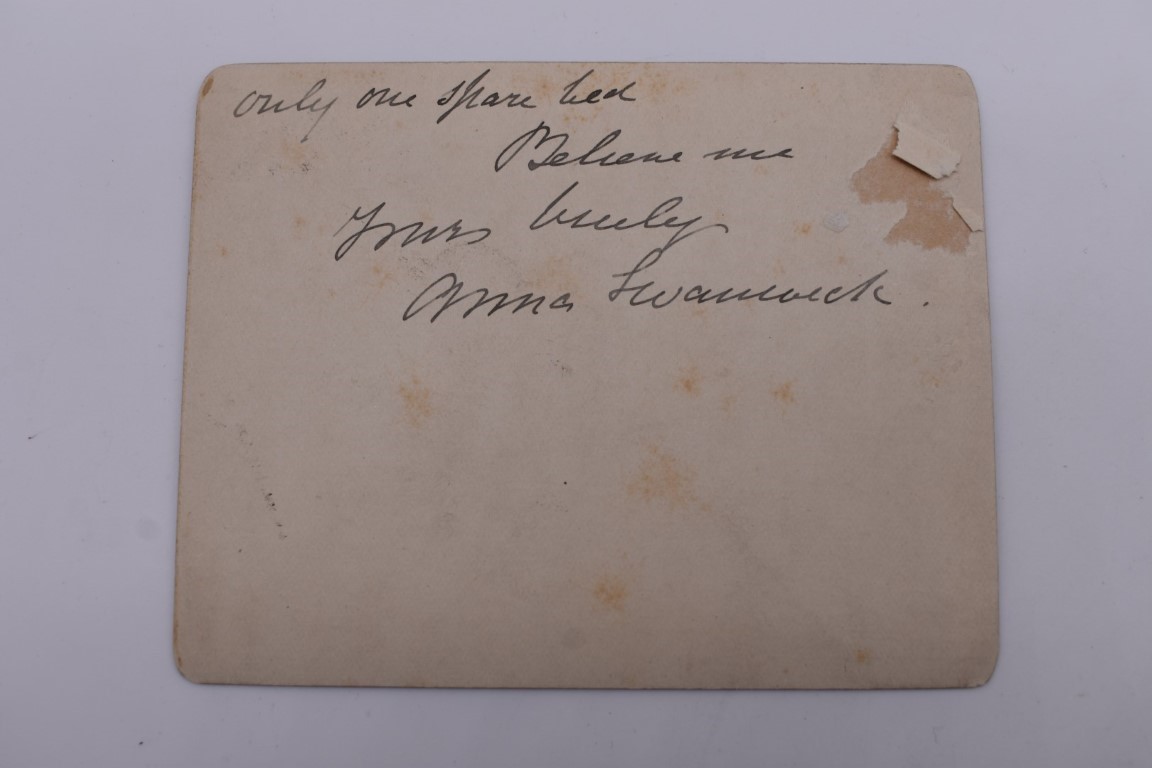 only one spare bed
Believe me
Yours truly
Anna Swanwick.